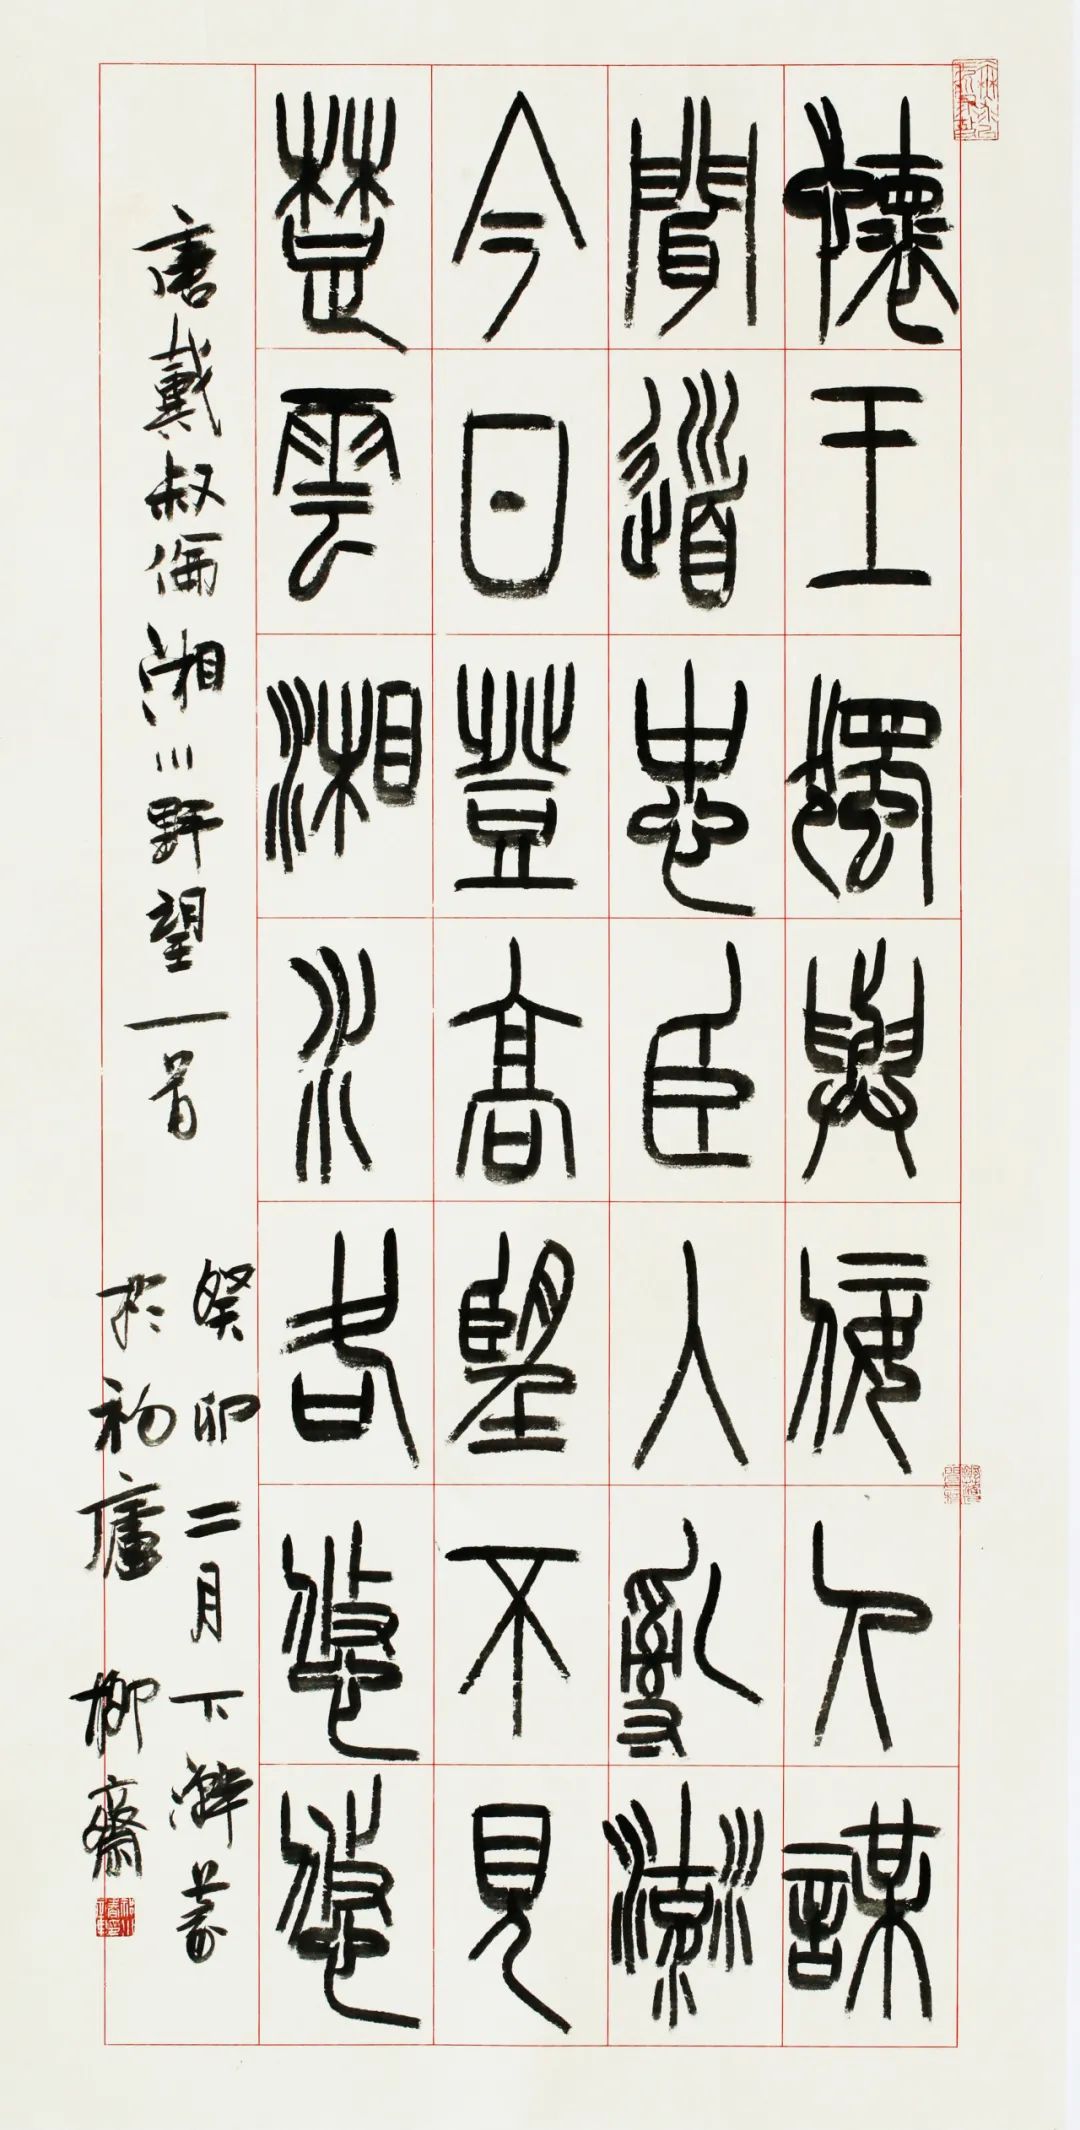 懷王獨與佞人謀
聞道忠臣入亂流
今日登高望不見
楚雲湘水各悠悠
唐戴叔倫湘川野望一首
癸卯二月下澣篆
於初廬 柳齋